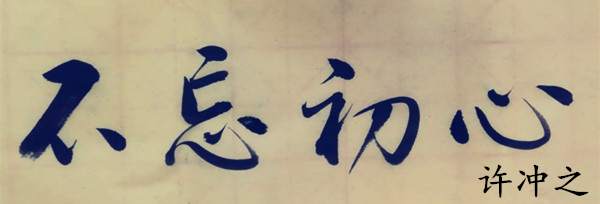 不忘初心
许冲之